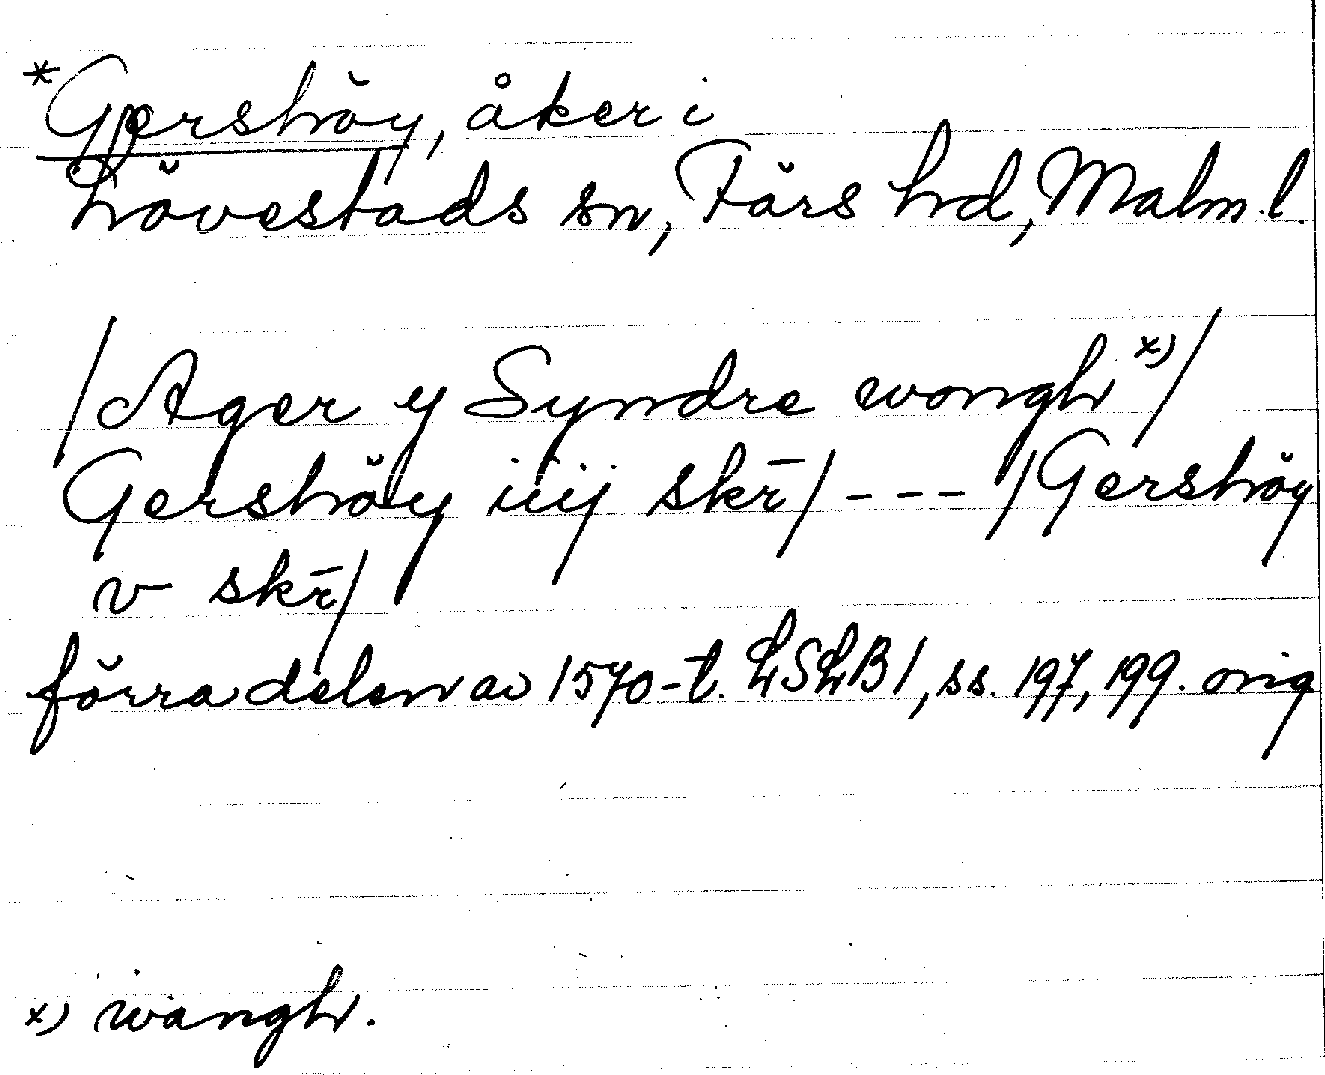 *Gershöy, åker i
Lövestads sn, Färs hd, Malm. l.
/Ager y Syndre wongh x)/
Gershöy iiij skr̄/ - - - /Gershöy
v skr̄/
förra delen av 1570-t. LSLB 1, ss. 197, 199. orig
x) wangh.